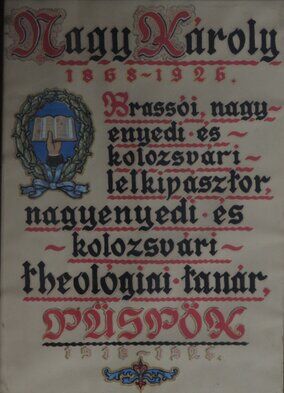 Nagy Károly
1868-1926.
Brassói, nagy-
enyedi és
kolozsvári
lelkipásztor,
nagyenyedi és
kolozsvári
theológiai tanár,
PÜSPÖK
1918-1926.